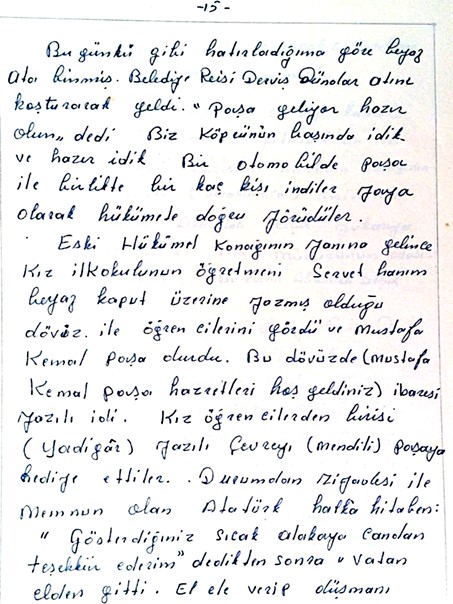 -15-
Bu günkü gibi hatırladığıma göre beyaz
Ata binmiş. Belediye Reisi Derviş Dündar atını
koşturarak geldi. "Paşa geliyor hazır
olun„ dedi Biz Köprünün başında idik
ve hazır idik Bir otomobilde paşa
ile birlikte bir kaç kişi indiler yaya
olarak hükümete doğru yürüdüler.
Eski Hükümet Konağının yanına gelince
Kız ilkokulunun öğretmeni Servet hanım
beyaz kaput üzerine yazmış olduğu
dövüz. ile öğrencilerini gördü ve Mustafa
Kemal paşa durdu. Bu dövüzde (Mustafa
Kemal paşa hazretleri hoş geldiniz) ibaresi
yazılı idi. Kız öğrencilerden birisi
(Yadigâr) yazılı Çevreyi (mendili) paşaya
hediye ettiler. Durumdan ziyadesi ile
Memnun olan Atatürk halka hitaben:
" Gösterdiğiniz sıcak alakaya candan
teşekkür ederim" dedikten sonra " Vatan
elden gitti. El ele verip düşmanı